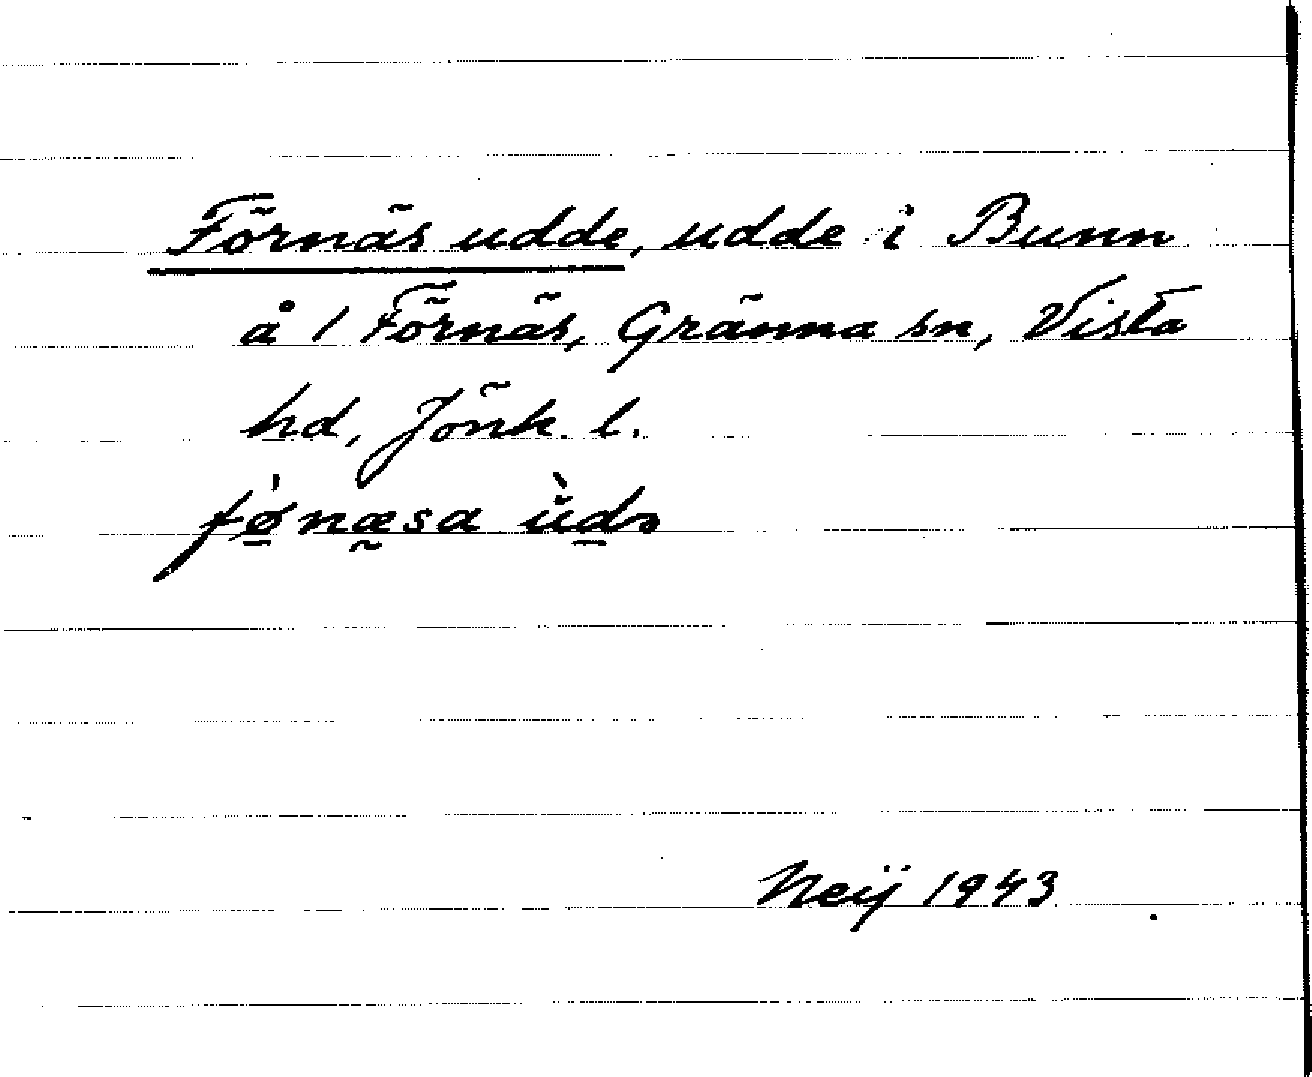 Förnäs udde, udde i Bunn
å 1 Förnäs, Gränna sn, Vista
hd, Jönk. l.
fø̀næsa ùdə
Neij 1943